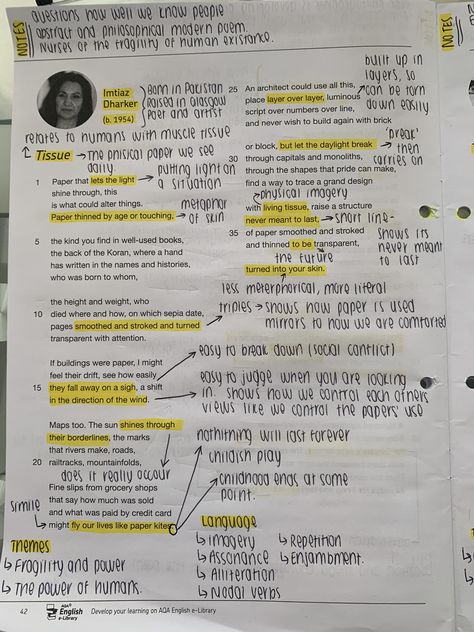 NOTES
questions how well we know people
abstract and philosophical modern poem.
Nurses of the fragility of human existance.
NOTES
Imtiaz
Dharker
(b. 1954)
Born in Pakistan
Raised in Glasgow
Poet and artist
relates to humans with muscle tissue
Tissue → The phisical paper we see
daily.
putting light on
a situation
1 Paper that lets the light
shine through, this
is what could alter things.
Paper thinned by age or touching,
metaphor
of skin
5 the kind you find in well-used books,
the back of the Koran, where a hand
has written in the names and histories,
who was born to whom,
the height and weight, who
10 died where and how, on which sepia date,
pages smoothed and stroked and turned
transparent with attention.
If buildings were paper, I might
feel their drift, see how easily
15 they fall away on a sigh, a shift
in the direction of the wind.
Maps too. The sun shines through
their borderlines, the marks
that rivers make, roads,
20 railtracks, mountainfolds,
does it really occour
Fine slips from grocery shops
that say how much was sold
and what was paid by credit card
might fly our lives like paper kites.
simile
Themes
↳ Fragility and power
↳ The power of humans.
built up in
layers, so
can be torn
down easily
25 An architect could use all this,
place layer over layer, luminous
script over numbers over line,
and never wish to build again with brick
'break'
then
carries on
or block, but let the daylight break
30 through capitals and monoliths,
through the shapes that pride can make,
find a way to trace a grand design
physical imagery
with living tissue, raise a structure
never meant to last,
→ short line-
shows its
never meant
to last
35 of paper smoothed and stroked
and thinned to be transparent,
the future
turned into your skin.
less meterphorical, more literal
triples → shows how paper is used
mirrors to how we are comforted
easy to break down (social conflict)
easy to judge when you are looking
in. shows how we control each others
views like we control the papers' use
nothithing will last forever
childish play
childhood ends at some
point.
Language
↳ Imagery
↳ Assonance
↳ Alliteration
↳ Modal verbs
↳ Repetition
↳ Enjambment.
42
AQA
English
e-Library
Develop your learning on AQA English e-Library